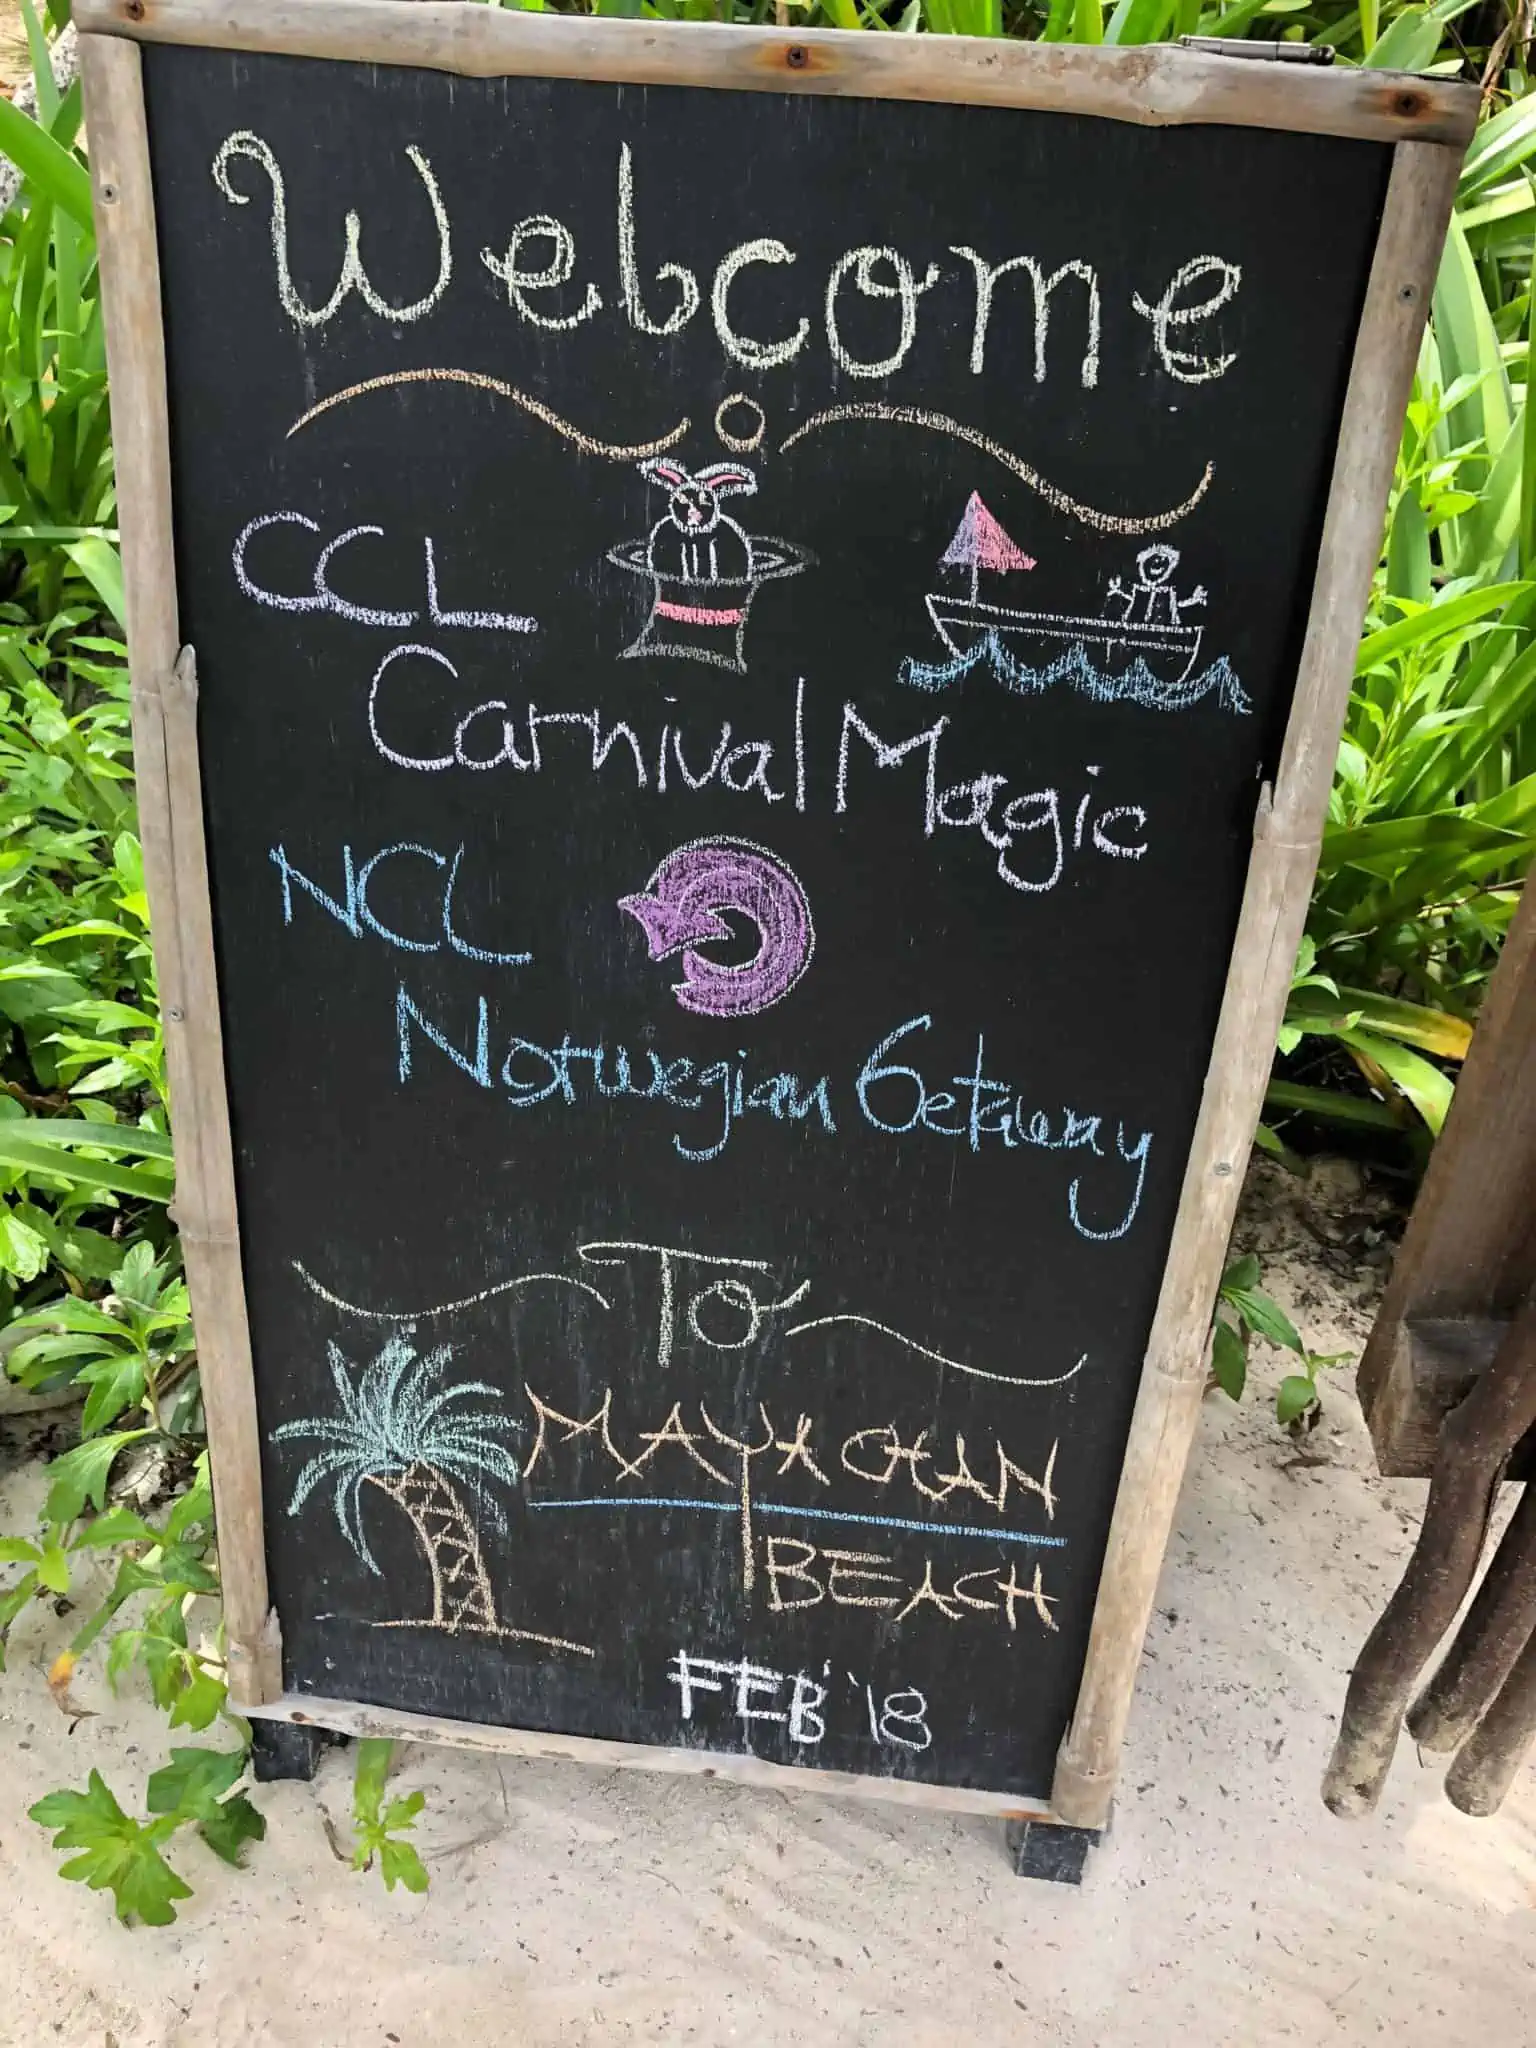 Welcome
CCL
Carnival Magic
NCL
Norwegian Getaway
To
MAYA CHAN
BEACH
FEB '18